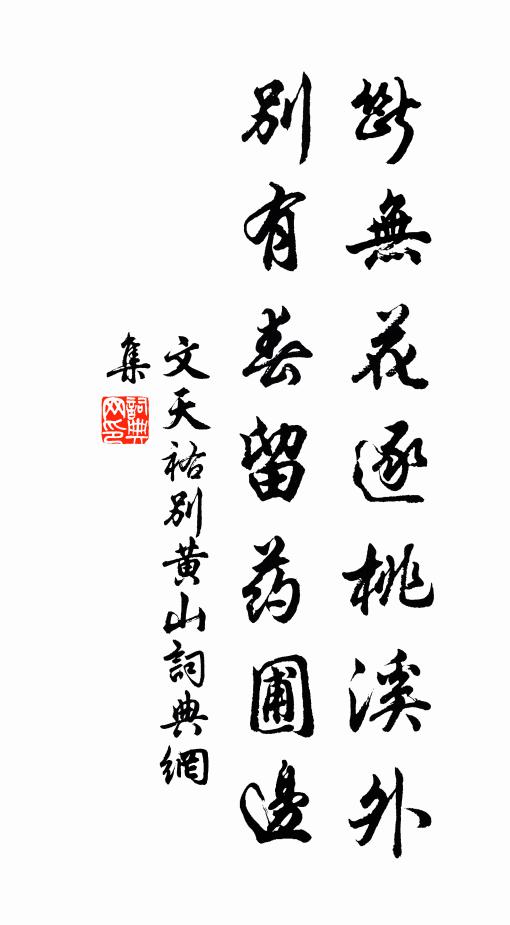 斷無花逐桃溪外
別有春留药圃邊
文天祐別黄山詞典網
集
詞典網印